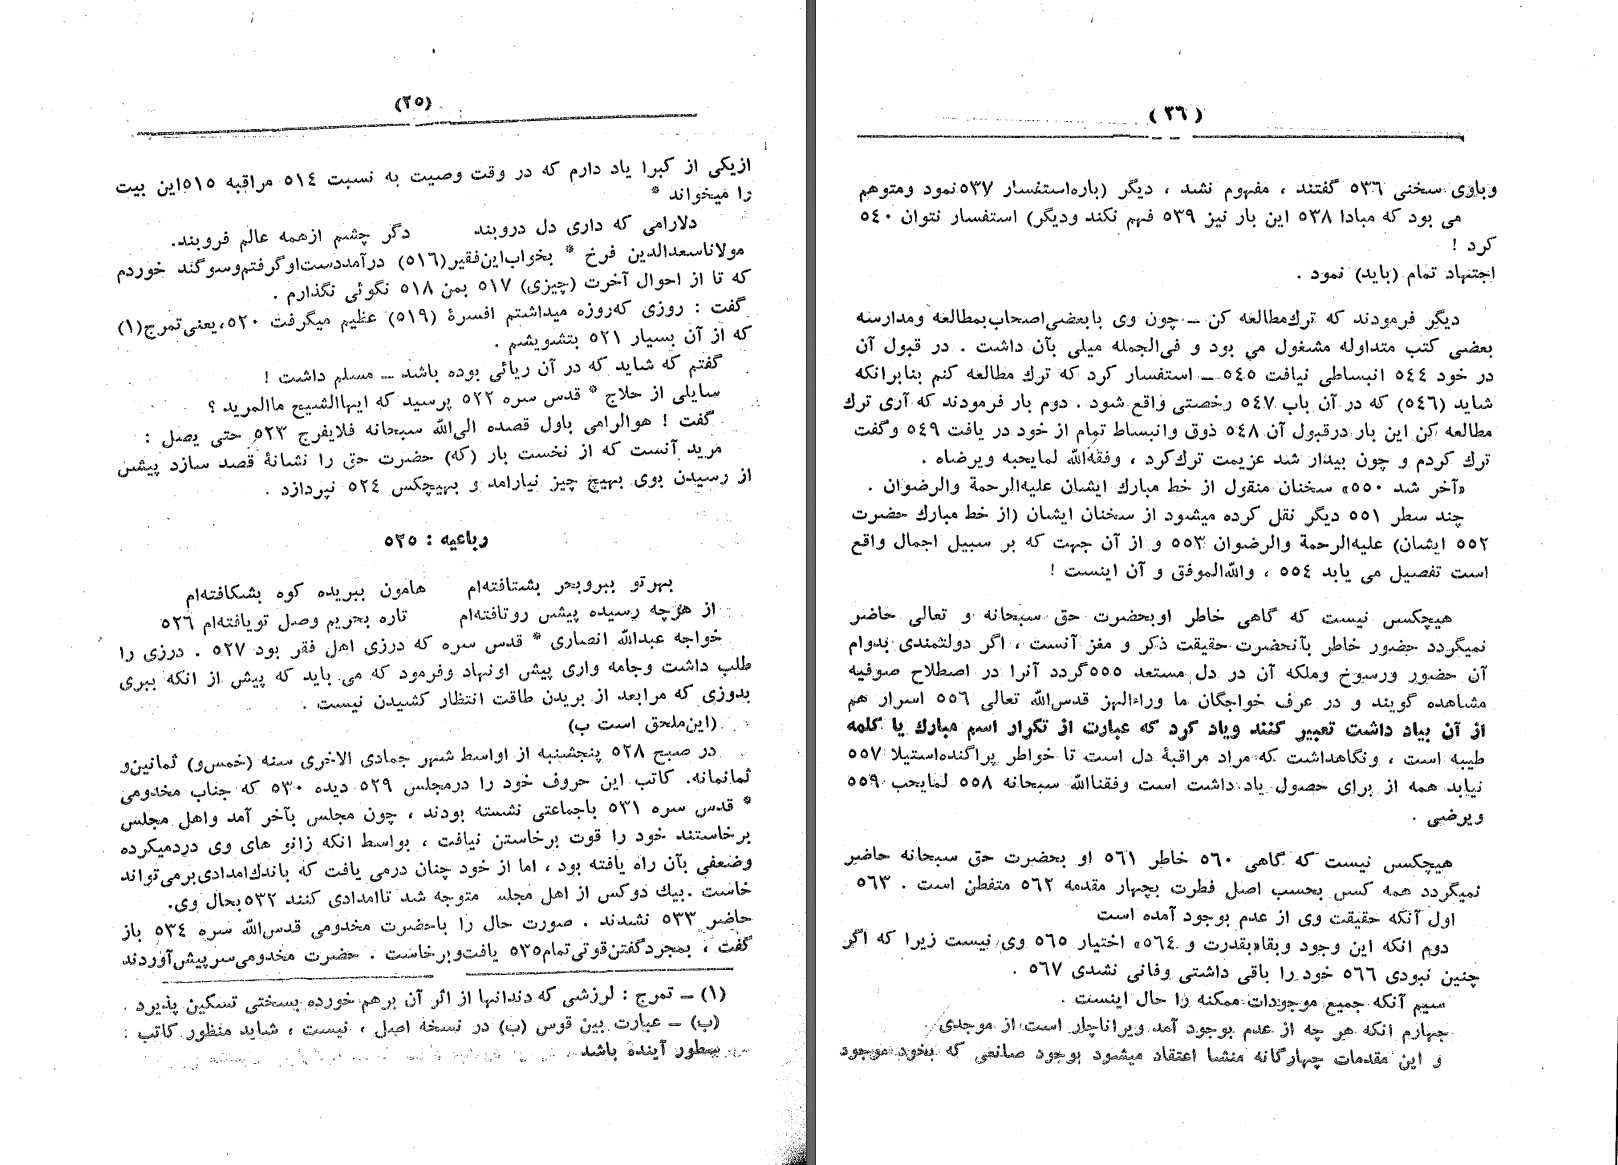 (۲۵)
ازیکی از کبرا یاد دارم که در وقت وصیت به نسبت ٥١٤ مراقبه ٥١٥این بیت
را میخواند *
دلارامی که داری دل دروبند دگر چشم ازهمه عالم فروبند.
مولاناسعدالدین فرخ * بخواب‌این‌فقیر(٥١٦) درآمددست‌اوگرفتم‌وسوگند خوردم
که تا از احوال آخرت (چیزی) ٥١٧ بمن ٥١٨ نگوئی نگذارم .
گفت : روزی که‌روزه میداشتم افسرهٔ (٥١٩) عظیم میگرفت ٥٢٠،یعنی‌تمرج(١)
که از آن بسیار ٥٢١ بتشویشم .
گفتم که شاید که در آن ریائی بوده باشد ــ مسلم داشت !
سایلی از حلاج * قدس سره ٥٢٢ پرسید که ایهاالشیخ ماالمرید ؟
گفت ! هوالرامی باول قصده الی‌الله سبحانه فلایفرج ٥٢٣ حتی یصل :
مرید آنست که از نخست بار (که) حضرت حق را نشانهٔ قصد سازد پیش
از رسیدن بوی بهیچ چیز نیارامد و بهیچکس ٥٢٤ نپردازد .
رباعیه : ٥٢٥
بهرتو ببروبحر بشتافته‌ام هامون ببریده کوه بشکافته‌ام
از هرچه رسیده پیش روتافته‌ام تاره بحریم وصل تویافته‌ام ٥٢٦
خواجه عبدالله انصاری * قدس سره که درزی اهل فقر بود ٥٢٧ . درزی را
طلب داشت وجامه واری پیش اونهاد وفرمود که می باید که پیش از انکه ببری
بدوزی که مرابعد از بریدن طاقت انتظار کشیدن نیست .
(این‌ملحق است ب)
در صبح ٥٢٨ پنجشنبه از اواسط شهر جمادی الاخری سنه (خمس‌و) ثمانین‌و
ثمانمانه. کاتب این حروف خود را درمجلس ٥٢٩ دیده ٥٣٠ که جناب مخدومی
* قدس سره ٥٣١ باجماعتی نشسته بودند ، چون مجلس بآخر آمد واهل مجلس
برخاستند خود را قوت برخاستن نیافت ، بواسط انکه زانو های وی دردمیکرده
وضعفی بآن راه یافته بود ، اما از خود چنان درمی یافت که باندك‌امدادی‌برمی‌تواند
خاست .بیك دوکس از اهل مجلس متوجه شد تاامدادی کنند ٥٣٢بحال وی.
حاضر ٥٣٣ نشدند . صورت حال را باحضرت مخدومی قدس‌الله سره ٥٣٤ باز
گفت ، بمجردگفتن‌قوتی‌تمام٥٣٥ یافت‌وبرخاست . حضرت مخدومی‌سرپیش‌آوردند
(١) ــ تمرج : لرزشی که دندانها از اثر آن برهم خورده بسختی تسکین پذیرد .
(ب) ــ عبارت بین قوس (ب) در نسخهٔ اصل ، نیست ، شاید منظور کاتب :
سطور آینده باشد
(٣٦)
وباوی سخنی ٥٣٦ گفتند ، مفهوم نشد ، دیگر (باره‌استفسار ٥٣٧نمود ومتوهم
می بود که مبادا ٥٣٨ این بار نیز ٥٣٩ فهم نکند ودیگر) استفسار نتوان ٥٤٠
کرد !
اجتهاد تمام (باید) نمود .
دیگر فرمودند که ترك‌مطالعه کن ــ چون وی بابعضی‌اصحاب‌بمطالعه ومدارسه
بعضی کتب متداوله مشغول می بود و فی‌الجمله میلی بآن داشت . در قبول آن
در خود ٥٤٤ انبساطی نیافت ٥٤٥ ــ استفسار کرد که ترك مطالعه کنم بنابرانکه
شاید (٥٤٦) که در آن باب ٥٤٧ رخصتی واقع شود . دوم بار فرمودند که آری ترك
مطالعه کن این بار درقبول آن ٥٤٨ ذوق وانبساط تمام از خود در یافت ٥٤٩ وگفت
ترك کردم و چون بیدار شد عزیمت ترك‌کرد ، وفقه‌الله لمایحبه ویرضاه .
«آخر شد ٥٥٠» سخنان منقول از خط مبارك ایشان علیه‌الرحمة والرضوان .
چند سطر ٥٥١ دیگر نقل کرده میشود از سخنان ایشان (از خط مبارك حضرت
٥٥٢ ایشان) علیه‌الرحمة والرضوان ٥٥٣ و از آن جهت که بر سبیل اجمال واقع
است تفصیل می یابد ٥٥٤ ، والله‌الموفق و آن اینست !
هیچکس نیست که گاهی خاطر اوبحضرت حق سبحانه و تعالی حاضر
نمیگردد حضور خاطر بآنحضرت حقیقت ذکر و مغز آنست ، اگر دولتمندی بدوام
آن حضور ورسوخ وملکه آن در دل مستعد ٥٥٥گردد آنرا در اصطلاح صوفیه
مشاهده گویند و در عرف خواجگان ما وراءالنهز قدس‌الله تعالی ٥٥٦ اسرار هم
از آن بیاد داشت تعبیر کنند ویاد کرد که عبارت از تکرار اسم مبارك یا کلمه
طیبه است ، ونگاهداشت که مراد مراقبهٔ دل است تا خواطر پراگنده‌استیلا ٥٥٧
نیابد همه از برای حصول یاد داشت است وفقناالله سبحانه ٥٥٨ لمایحب ٥٥٩
ویرضی .
هیچکس نیست که گاهی ٥٦٠ خاطر ٥٦١ او بحضرت حق سبحانه حاضر
نمیگردد همه کس بحسب اصل فطرت بچهار مقدمه ٥٦٢ متفطن است . ٥٦٣
اول آنکه حقیقت وی از عدم بوجود آمده است
دوم انکه این وجود وبقا«بقدرت و ٥٦٤» اختیار ٥٦٥ وی نیست زیرا که اگر
چنین نبودی ٥٦٦ خود را باقی داشتی وفانی نشدی ٥٦٧ .
سیم آنکه جمیع موجودات ممکنه را حال اینست .
چهارم انکه هر چه از عدم بوجود آمد ویراناچار است از موجدی
و این مقدمات چهارگانه منشا اعتقاد میشود بوجود صانعی که بخود موجود